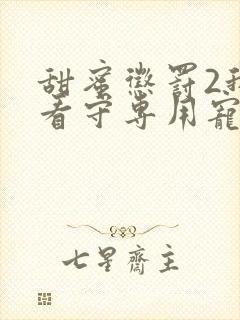 甜蜜惩罚2我
看守专用宠
七星斋主